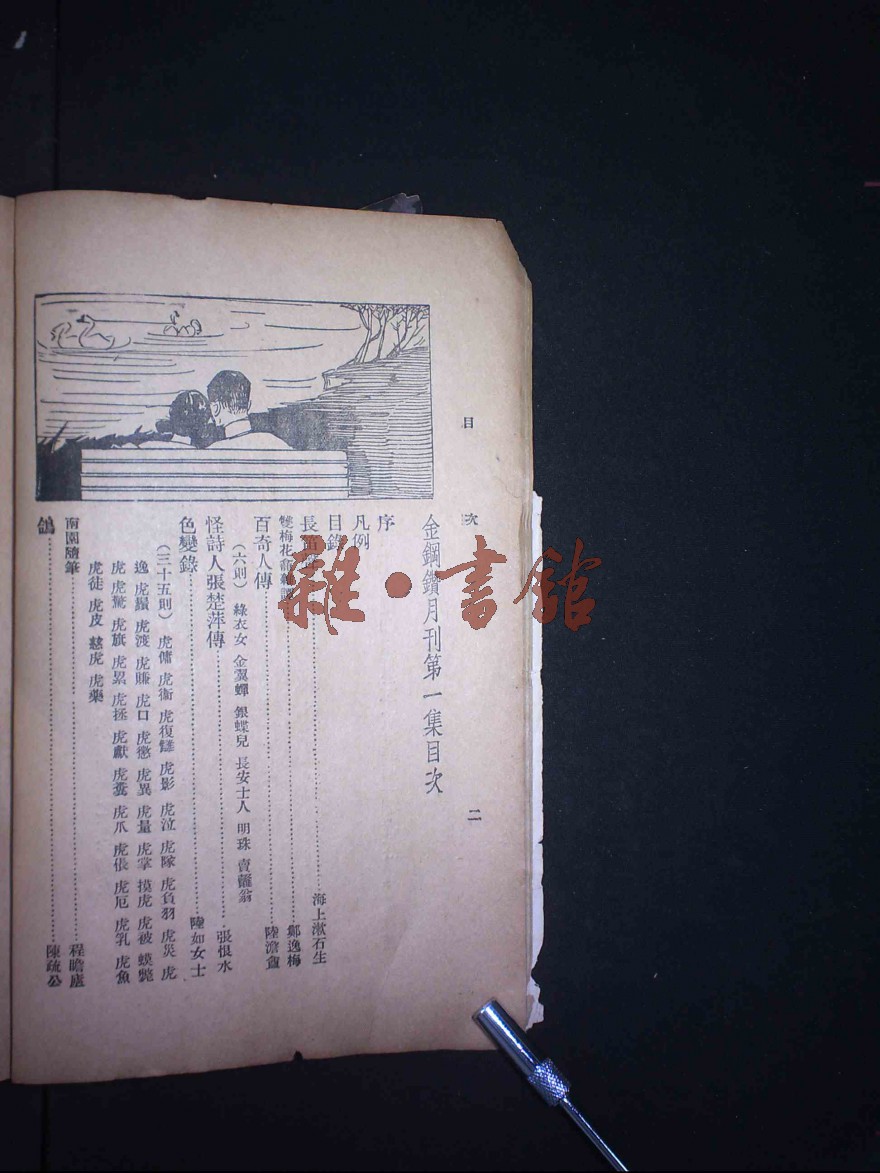 目次 二
金鋼鑽月刊第一集目次
序
凡例
目錄
長笛 海上漱石生
雙梅花 鄭逸梅
百奇人傳 陸澹盦
(六則) 綠衣女 金翼蟬 銀蝶兒 長安士人 明珠 賣虀翁
怪詩人張楚萍傳 張恨水
色變錄 陸如女士
(三十五則) 虎傭 虎衛 虎復讎 虎影 虎泣 虎隊 虎負羽 虎災 虎
逸 虎鬚 虎渡 虎賺 虎口 虎懲 虎異 虎量 虎掌 摸虎 虎被
虎 虎驚 虎旗 虎累 虎拯 虎獻 虎爪 虎倀 虎厄 虎乳 虎魚
虎徒 虎皮 虎 虎藥
南園隨筆 程瞻廬
鴿 陳疏公
雜·書館